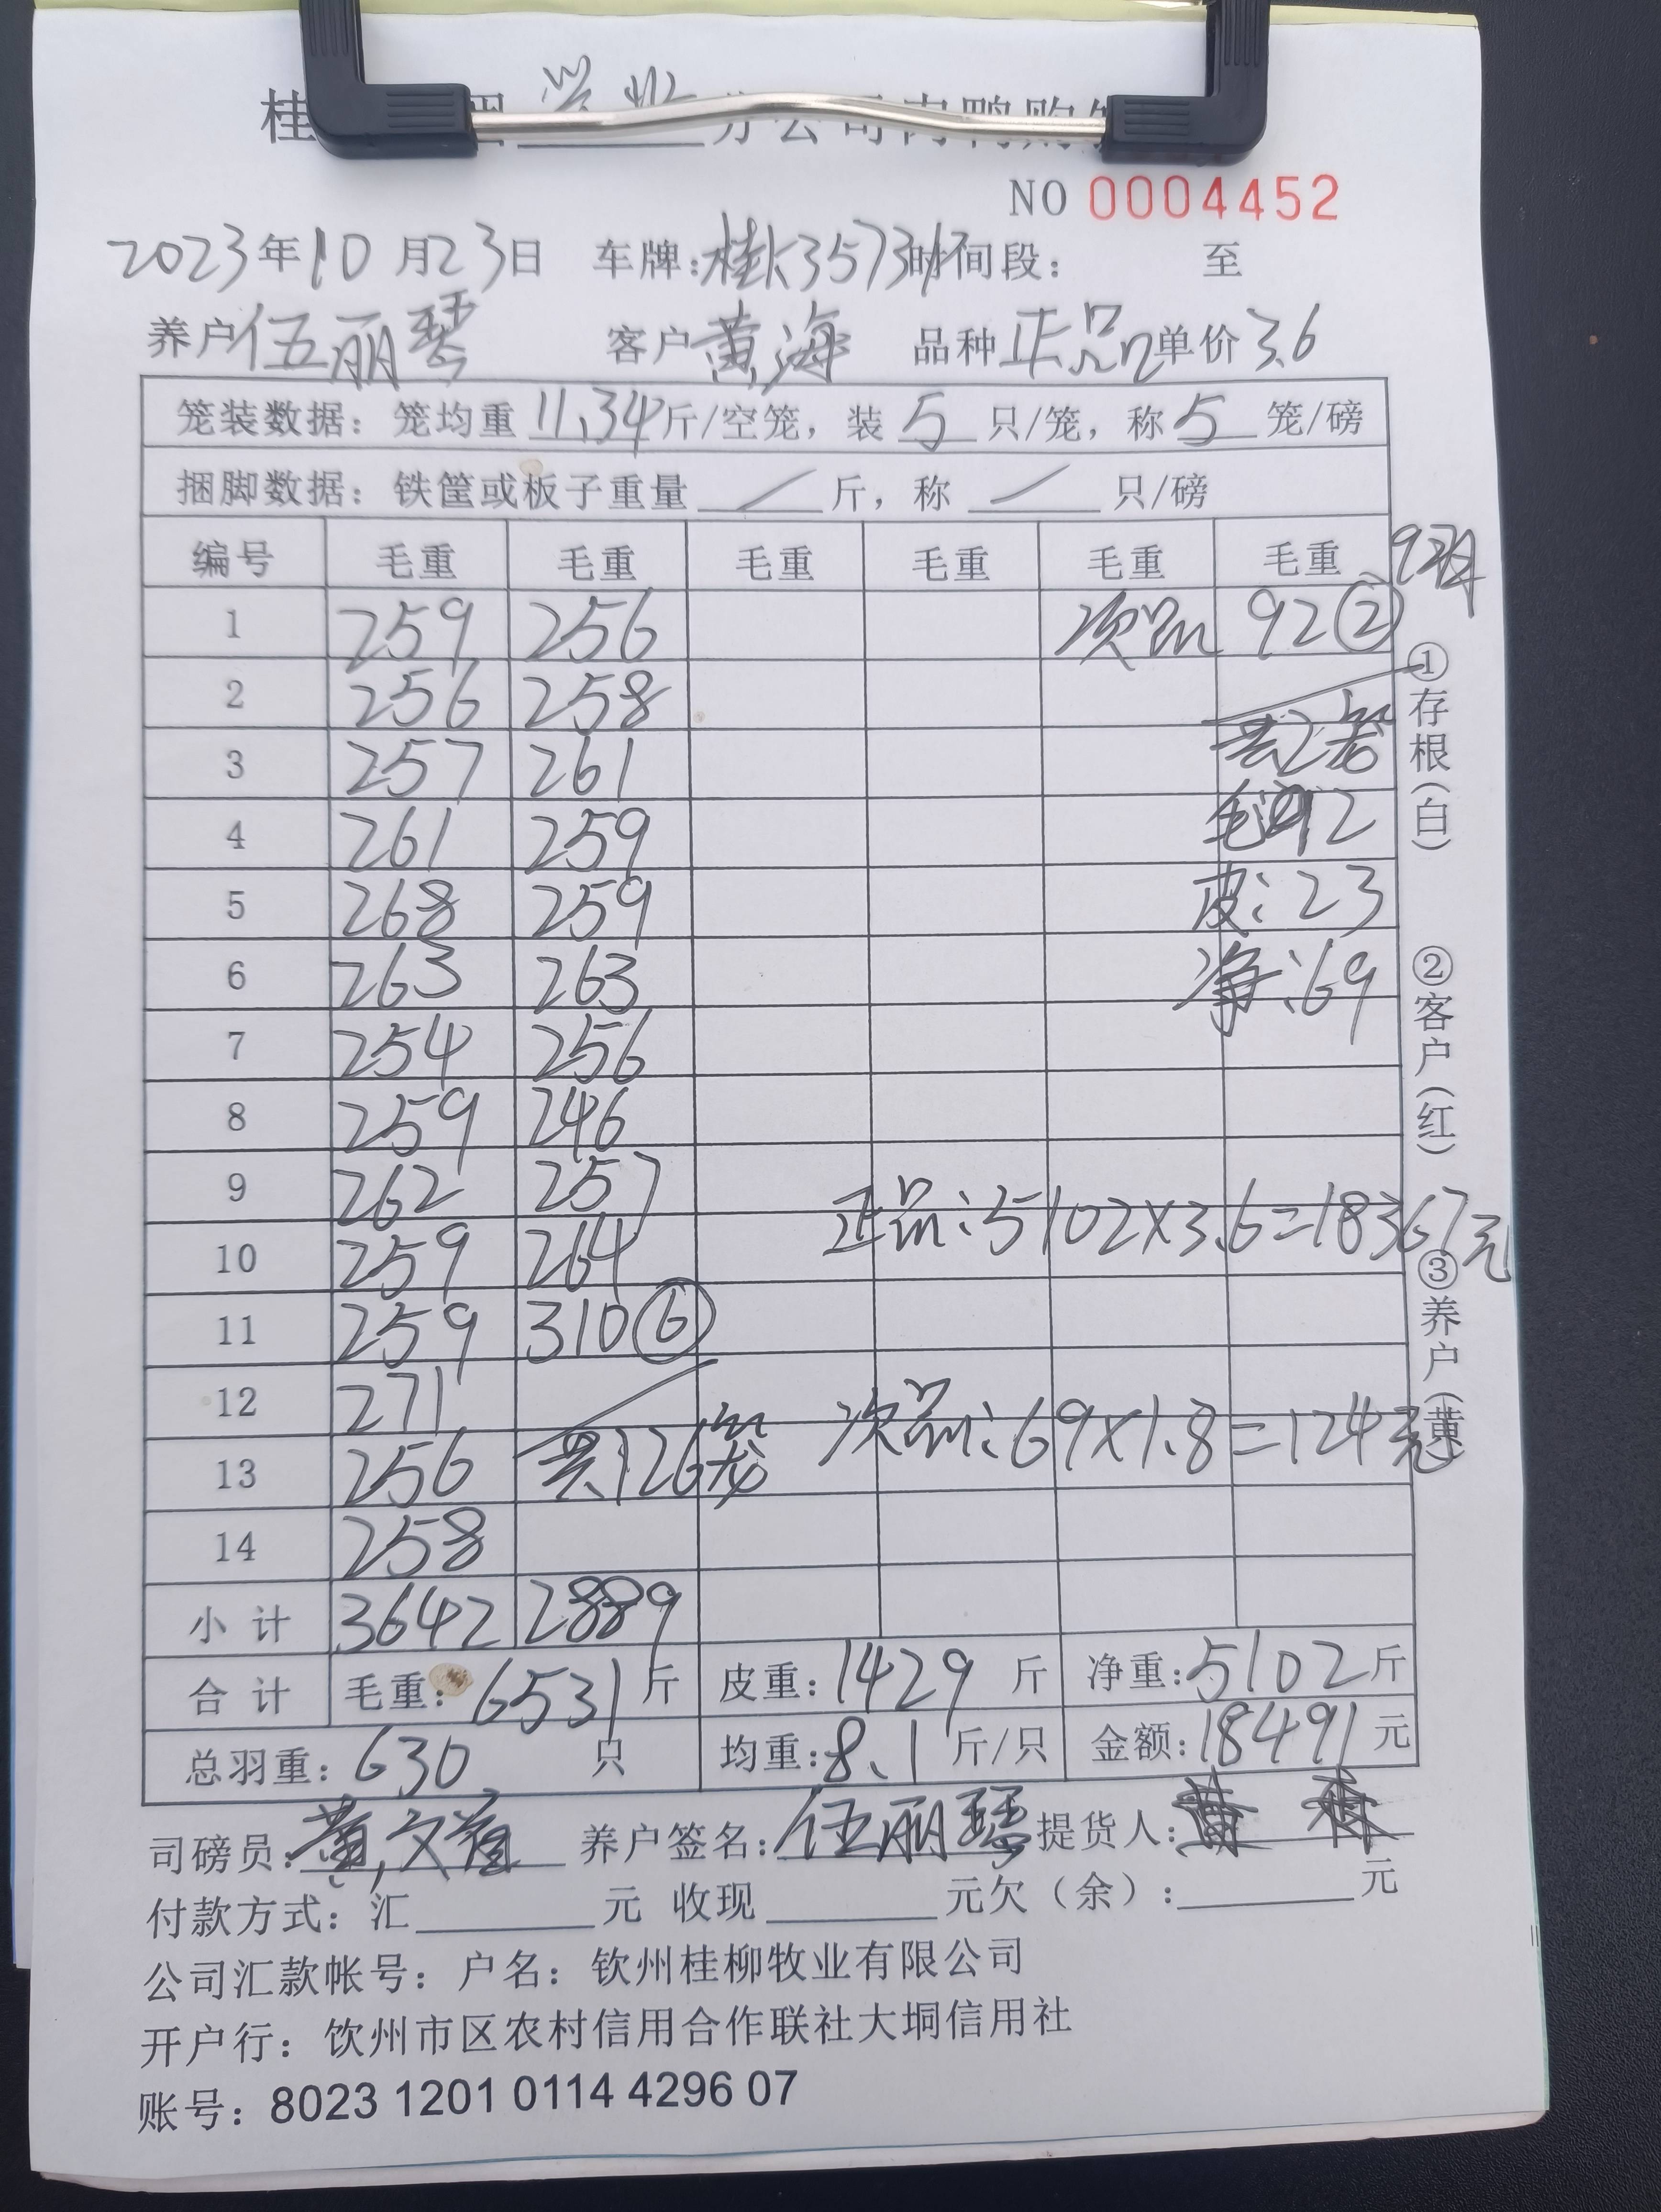 NO 0004452
2023年10月23日 车牌:桂K35731 时间段: 至
养户 伍丽琴 客户 黄海 品种 正品 单价 3.6
笼装数据: 笼均重 11.34 斤/空笼, 装 5 只/笼, 称 5 笼/磅
捆脚数据: 铁筐或板子重量 / 斤, 称 / 只/磅
编号 毛重 毛重 毛重 毛重 毛重 毛重
1 259 256 次品 92②
2 256 258
3 257 261 共2笼
4 261 259 毛:92
5 268 259 皮:23
6 263 263 净:69
7 254 256
8 259 246
9 262 257 正品:5102×3.6=18367元
10 259 264
11 259 310⑥
12 271
13 256 共126笼 次品:69×1.8=124元
14 258
小计 3642 2889
合计 毛重:6531斤 皮重:1429斤 净重:5102斤
总羽重:630只 均重:8.1斤/只 金额:18491元
司磅员: 养户签名:伍丽琴 提货人:
付款方式: 汇 元 收现 元欠(余): 元
公司汇款帐号: 户名: 钦州桂柳牧业有限公司
开户行: 钦州市区农村信用合作联社大垌信用社
账号: 8023 1201 0114 4296 07
①存根(白) ②客户(红) ③养户(黄)